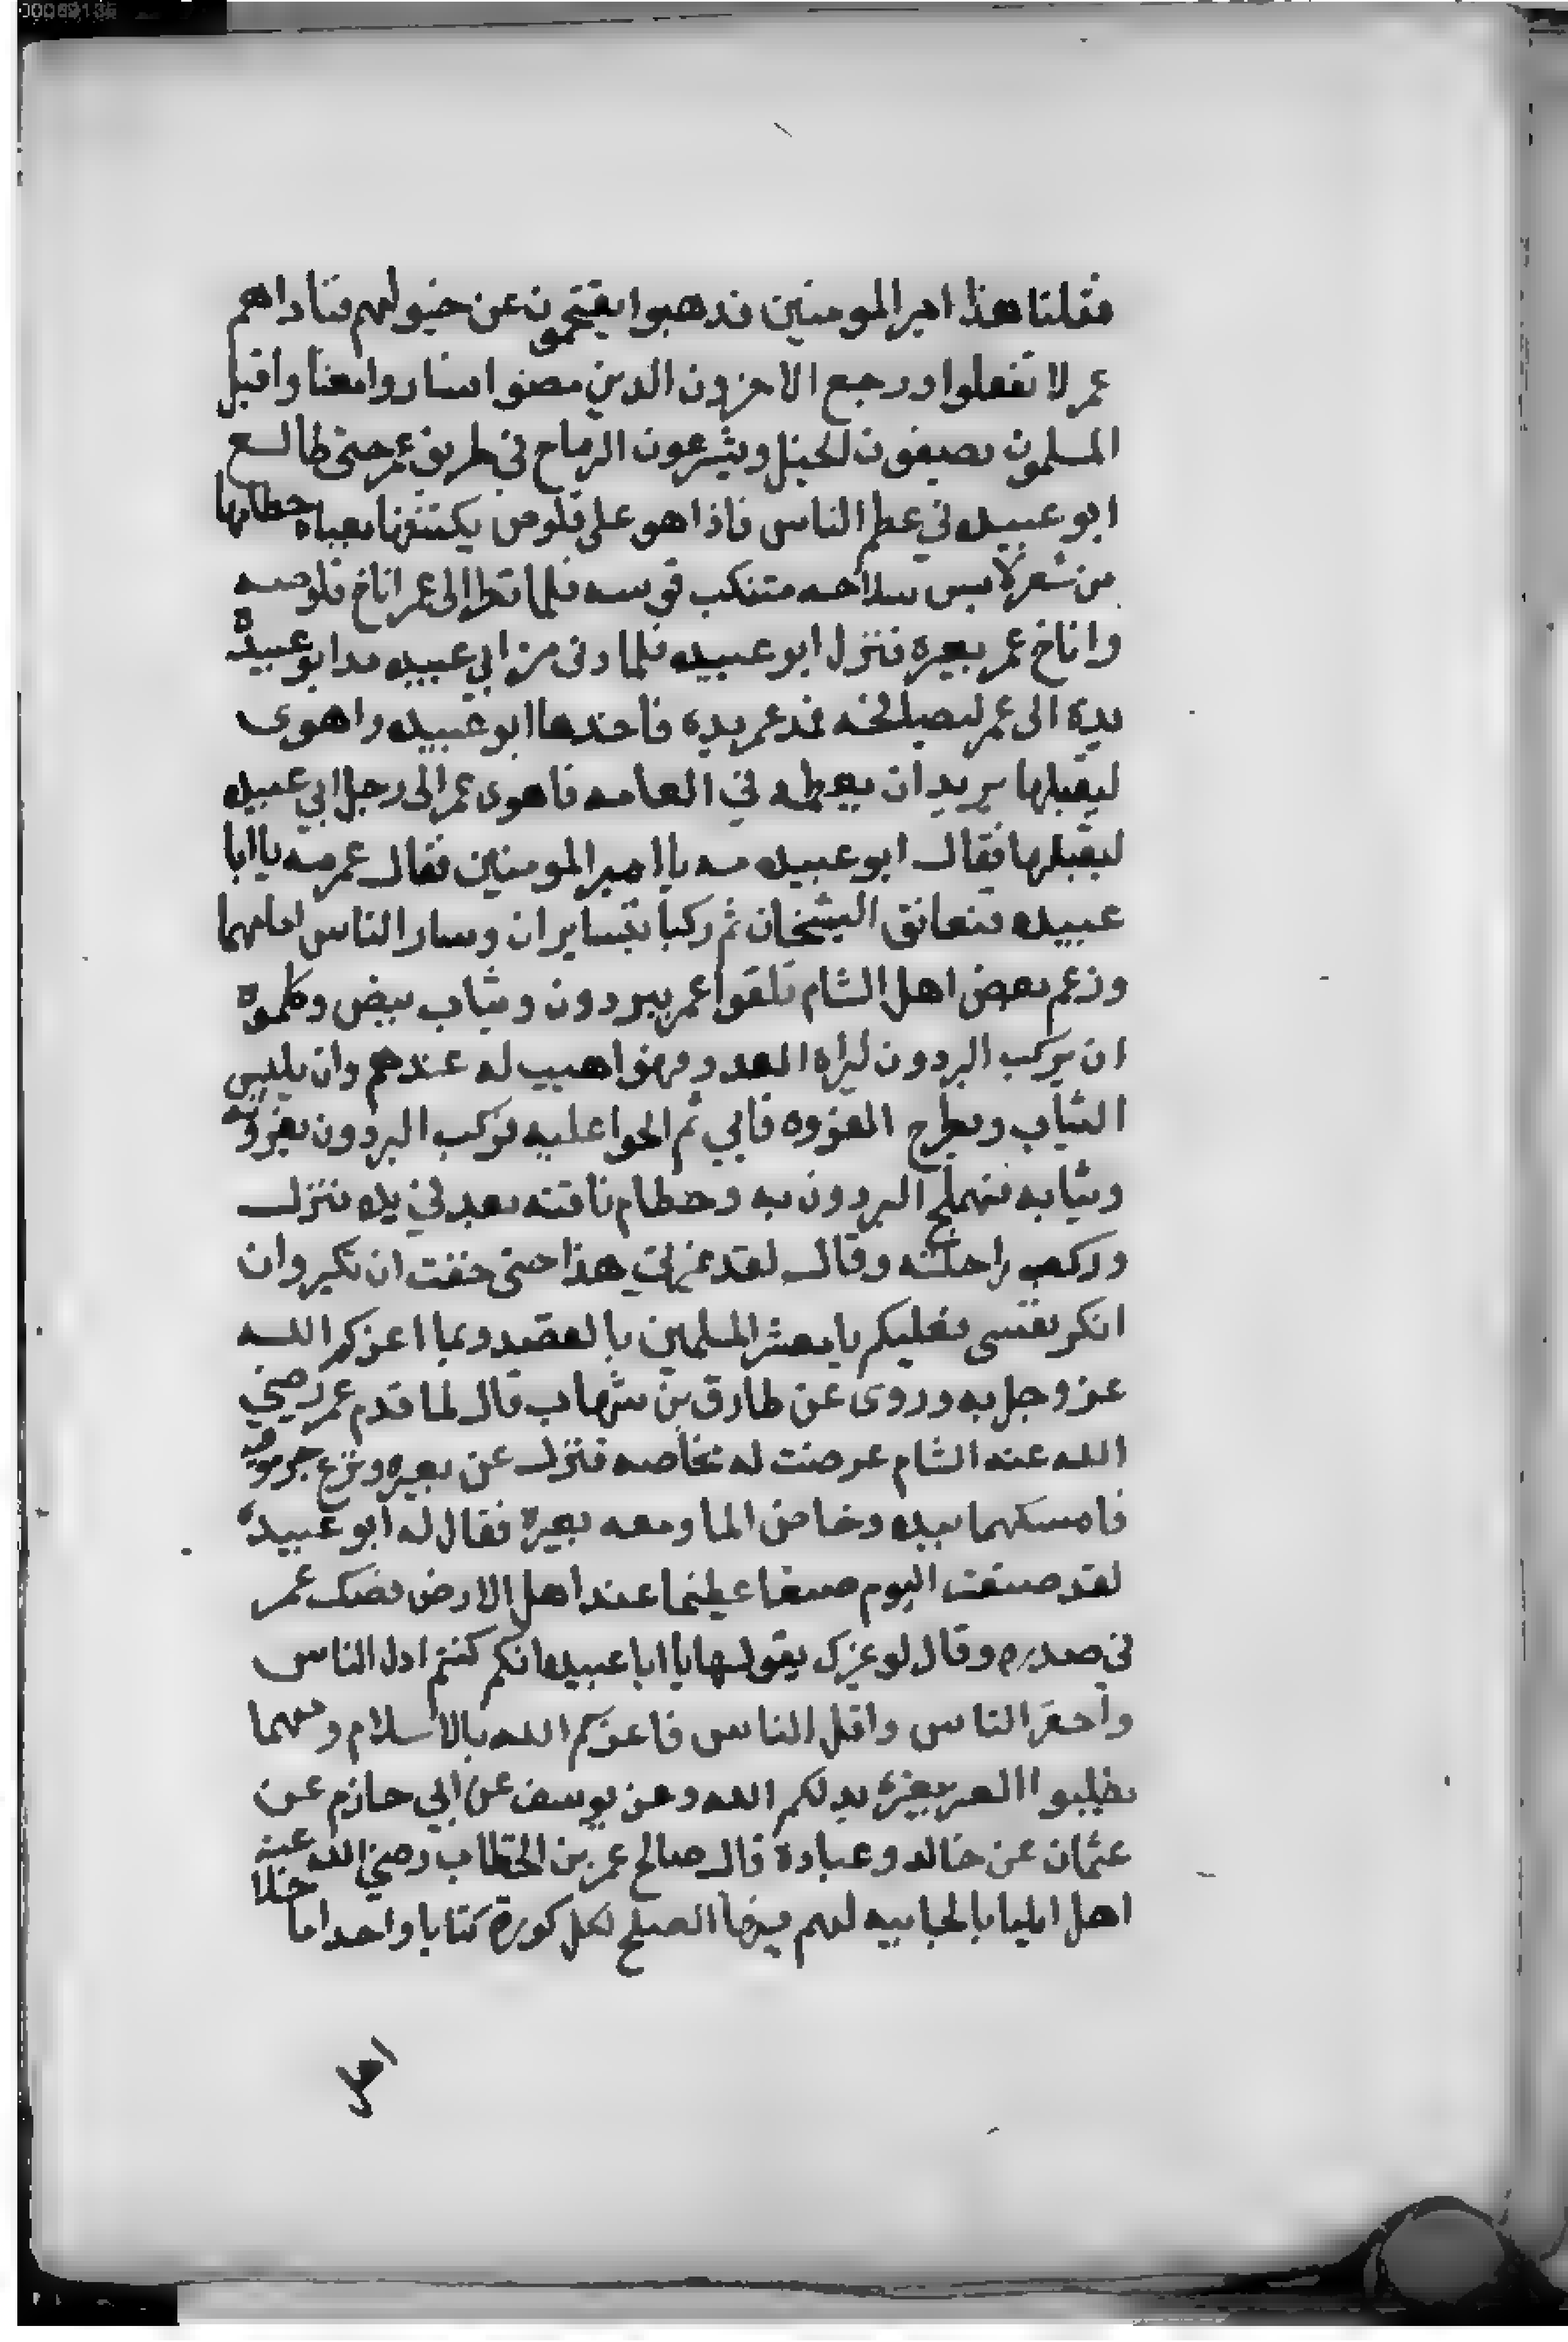 فقلنا هذا امير المومنين فدهبوا يقتحمون عن خيولهم فناداهم
عمر لا تفعلوا ورجع الاخرون الدين مضوا فساروا معنا واقبل
المسلمون يصيفون الخيل ويشرعون الرماح في طريق عمر حتى طالع
ابو عبيده في عظم الناس فاذا هو على قلوص يكتنفها بعباه خطامها
من شعر لابس سلاحه متنكب قوسه فلما نظر الى عمر اناخ قلوصه
واناخ عمر بعيره فنزل ابو عبيده فلما دنى من ابي عبيده مد ابو عبيدة
يده الى عمر ليصالحه فمد عمر يده فاخدها ابو عبيده واهوى
ليقبلها يريد ان يعظمه في العامه فاهوى عمر الى رجل ابي عبيده
ليقبلها فقال ابو عبيده مه يا امير المومنين فقال عمر مه يا ابا
عبيده فتعانق الشيخان ثم ركبا يتسايران وسار الناس امامهما
وزعم بعض اهل الشام تلقوا عمر ببردون وثياب بيض وكلموه
ان يركب البردون ليراه العدو فهو اهيب له عندهم وان يلبس
الثياب ويطرح الفروه فابي ثم الحوا عليه فركب البردون بفروته
وثيابه فهملج البردون به وخطام ناقته بعد في يده فنزل
وركب راحلته وقال لقد غيرني هذا حتى خفت ان تكبر وان
انكر نفسى فعليكم يا معشر المسلمين بالقصد وبما اعزكم الله
عز وجل به وروى عن طارق بن شهاب قال لما قدم عمر رضي
الله عنه الشام عرضت له مخاضه فنزل عن بعيره ونزع جرموقيه
فامسكهما بيده وخاض الما ومعه بعيره فقال له ابو عبيدة
لقد صنعت اليوم صنعا عظيما عند اهل الارض فصك عمر
في صدره وقال لو غيرك يقولها يا ابا عبيده انكم كنتم ادل الناس
واحقر الناس واقل الناس فاعزكم الله بالاسلام ومهما
تطلبوا العز بغيره يدلكم الله وعن يوسف عن ابي حازم عن
عثمان عن خالد وعبادة قال صالح عمر بن الخطاب رضي الله عنه
اهل ايليا بالجابيه لهم فيها الصلح لكل كورة كتابا واحدا ما خلا
اهل